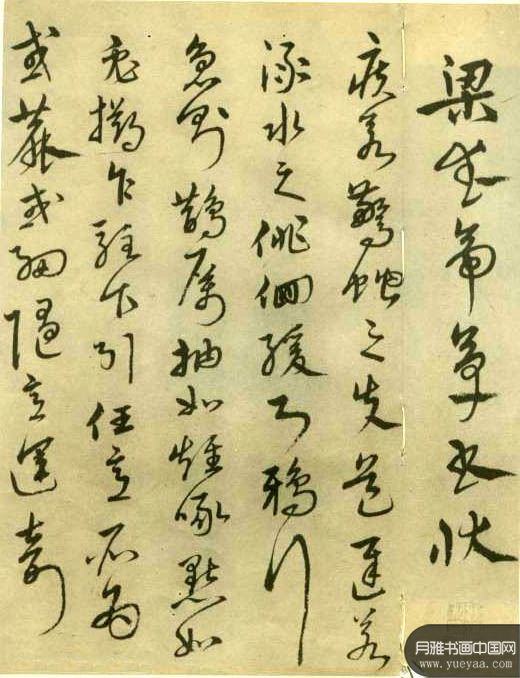 梁武帝草書狀
疾若驚蛇之失道遲若
淥水之俳佪緩則鴉行
急則鵲厲抽如雉啄點如
兔擲乍駐乍引任意所為
或麁或細隨意運奇
月雅书画中国网
www.yueyaa.com